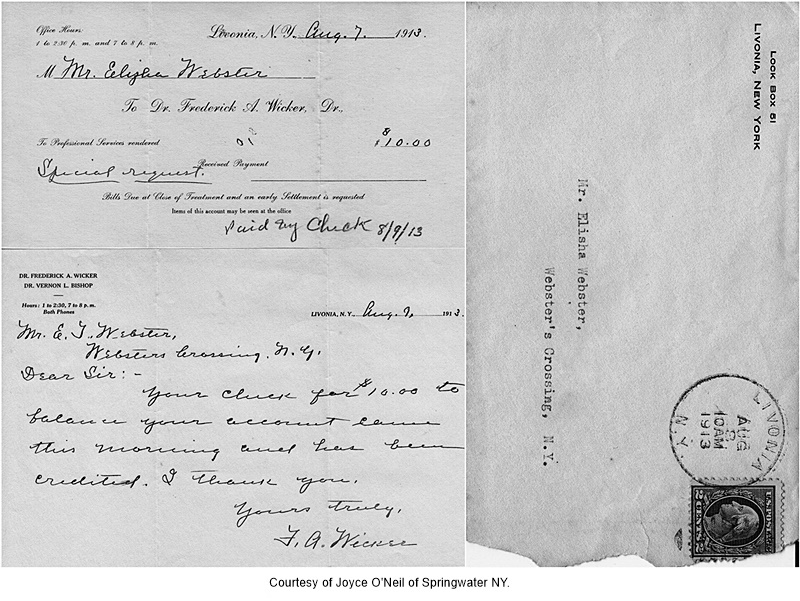 Office Hours
1 to 2:30 p. m. and 7 to 8 p. m.
Livonia, N. Y., Aug. 7. 1913.
M Mr. Elisha Webster
To Dr. Frederick A. Wicker, Dr.,
To Professional Services rendered
$10.00
Received Payment
Special request.
Bills Due at Close of Treatment and an early Settlement is requested
Items of this account may be seen at the office
Paid by Check 8/9/13
DR. FREDERICK A. WICKER
DR. VERNON L. BISHOP
Hours: 1 to 2:30, 7 to 8 p. m.
Both Phones
LIVONIA, N. Y., Aug. 9, 1913.
Mr. E. T. Webster,
Websters Crossing, N.Y.
Dear Sir:-
Your check for $10.00 to
balance your account came
this morning and has been
credited. I thank you.
Yours truly,
F. A. Wicker
LOCK BOX 51
LIVONIA, NEW YORK
Mr. Elisha Webster,
Webster's Crossing, N.Y.
LIVONIA
AUG
10AM
1913
N.Y.
U.S. POSTAGE
2 CENTS 2
Courtesy of Joyce O'Neil of Springwater NY.